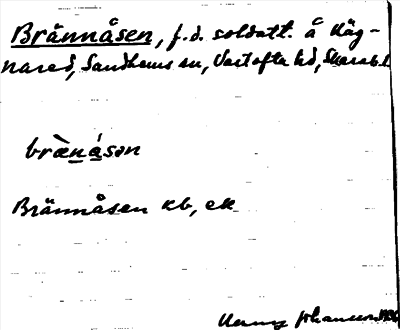 Brännåsen, f.d. soldatt. å Häg-
nared, Sandhems sn, Vartofta hd, Skarab. l.
bræ̀nåsən
Brännåsen kb, ek
Johansson